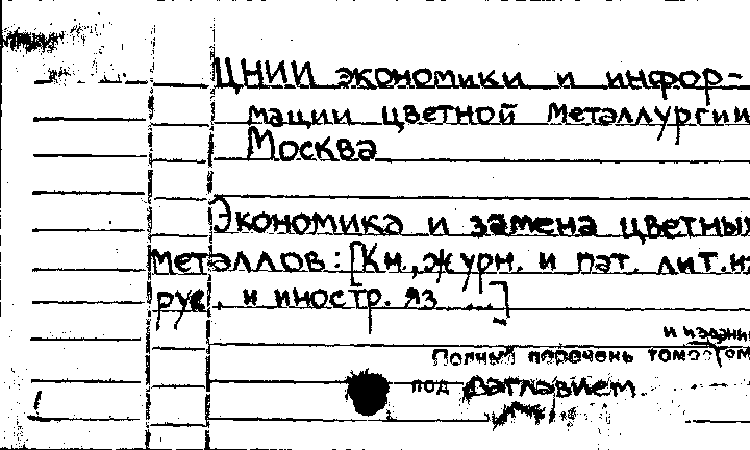 ЦНИИ экономики и инфор-
мации цветной металлургии
Москва
Экономика и замена цветных
металлов: [Кн., журн. и пат. лит. на
рус. и иностр. яз ...]
и издании
Полный перечень томов
под заглавием